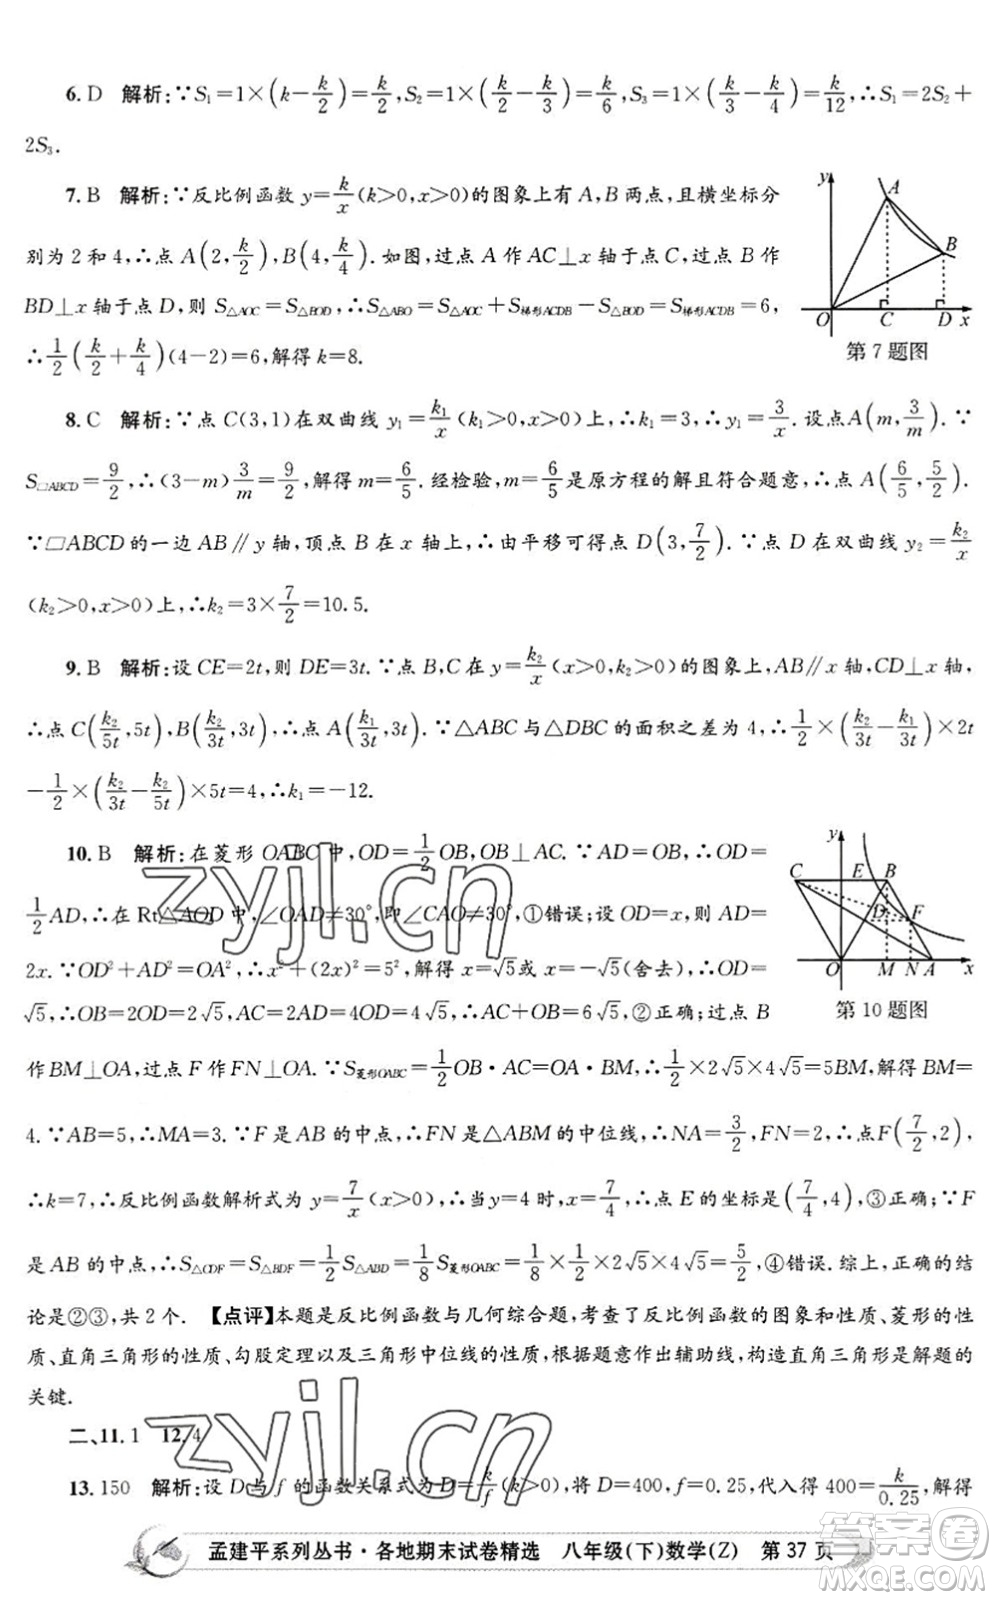 6. D 解析:∵S₁=1×(k-k/2)=k/2,S₂=1×(k/2-k/3)=k/6,S₃=1×(k/3-k/4)=k/12,∴S₁=2S₂+
2S₃.
7. B 解析:∵反比例函数 y=k/x(k>0,x>0)的图象上有 A,B 两点,且横坐标分
别为 2 和 4,∴点 A(2,k/2),B(4,k/4). 如图,过点 A 作 AC⊥x 轴于点 C,过点 B 作
BD⊥x 轴于点 D,则 S△AOC=S△BOD,∴S△ABO=S△AOC+S梯形ACDB-S△BOD=S梯形ACDB=6,
∴1/2(k/2+k/4)(4-2)=6,解得 k=8.
y A B O C D x
第 7 题图
8. C 解析:∵点 C(3,1)在双曲线 y₁=k₁/x(k₁>0,x>0)上,∴k₁=3,∴y₁=3/x. 设点A(m,3/m). ∵
S□ABCD=9/2,∴(3-m)3/m=9/2,解得 m=6/5. 经检验,m=6/5是原方程的解且符合题意,∴点 A(6/5,5/2).
∵□ABCD 的一边 AB∥y 轴,顶点 B 在 x 轴上,∴由平移可得点 D(3,7/2). ∵点 D 在双曲线 y₂=k₂/x
(k₂>0,x>0)上,∴k₂=3×7/2=10.5.
9. B 解析:设 CE=2t,则 DE=3t. ∵点 B,C 在 y=k₂/x(x>0,k₂>0)的图象上,AB∥x 轴,CD⊥x 轴,
∴点 C(k₂/5t,5t),B(k₂/3t,3t),∴点 A(k₁/3t,3t). ∵△ABC 与△DBC 的面积之差为 4,∴1/2×(k₂/3t-k₁/3t)×2t
-1/2×(k₂/3t-k₂/5t)×5t=4,∴k₁=-12.
10. B 解析:在菱形 OABC 中,OD=1/2OB,OB⊥AC. ∵AD=OB,∴OD=
1/2AD,∴在 Rt△AOD 中,∠OAD≠30°,即∠CAO≠30°,①错误;设 OD=x,则 AD=
2x. ∵OD²+AD²=OA²,∴x²+(2x)²=5²,解得 x=√5或 x=-√5(舍去),∴OD=
√5,∴OB=2OD=2√5,AC=2AD=4OD=4√5,∴AC+OB=6√5,②正确;过点 B
y C E B D F O M N A x
第 10 题图
作 BM⊥OA,过点 F 作 FN⊥OA. ∵S菱形OABC=1/2OB·AC=OA·BM,∴1/2×2√5×4√5=5BM,解得 BM=
4. ∵AB=5,∴MA=3. ∵F 是 AB 的中点,∴FN 是△ABM 的中位线,∴NA=3/2,FN=2,∴点F(7/2,2),
∴k=7,∴反比例函数解析式为 y=7/x(x>0),∴当 y=4 时,x=7/4,∴点 E 的坐标是(7/4,4),③正确;∵F
是 AB 的中点,∴S△CDF=S△BDF=1/2S△ABD=1/8S菱形OABC=1/8×1/2×2√5×4√5=5/2,④错误. 综上,正确的结
论是②③,共 2 个. 【点评】本题是反比例函数与几何综合题,考查了反比例函数的图象和性质、菱形的性
质、直角三角形的性质、勾股定理以及三角形中位线的性质,根据题意作出辅助线,构造直角三角形是解题的
关键.
二、11. 1 12. 4
13. 150 解析:设 D 与 f 的函数关系式为 D=k/f(k≠0),将 D=400,f=0.25,代入得 400=k/0.25,解得
孟建平系列丛书·各地期末试卷精选 八年级(下)数学(Z) 第 37 页
zyjl.cn
zyjl.cn
答案圈
MXQE.COM